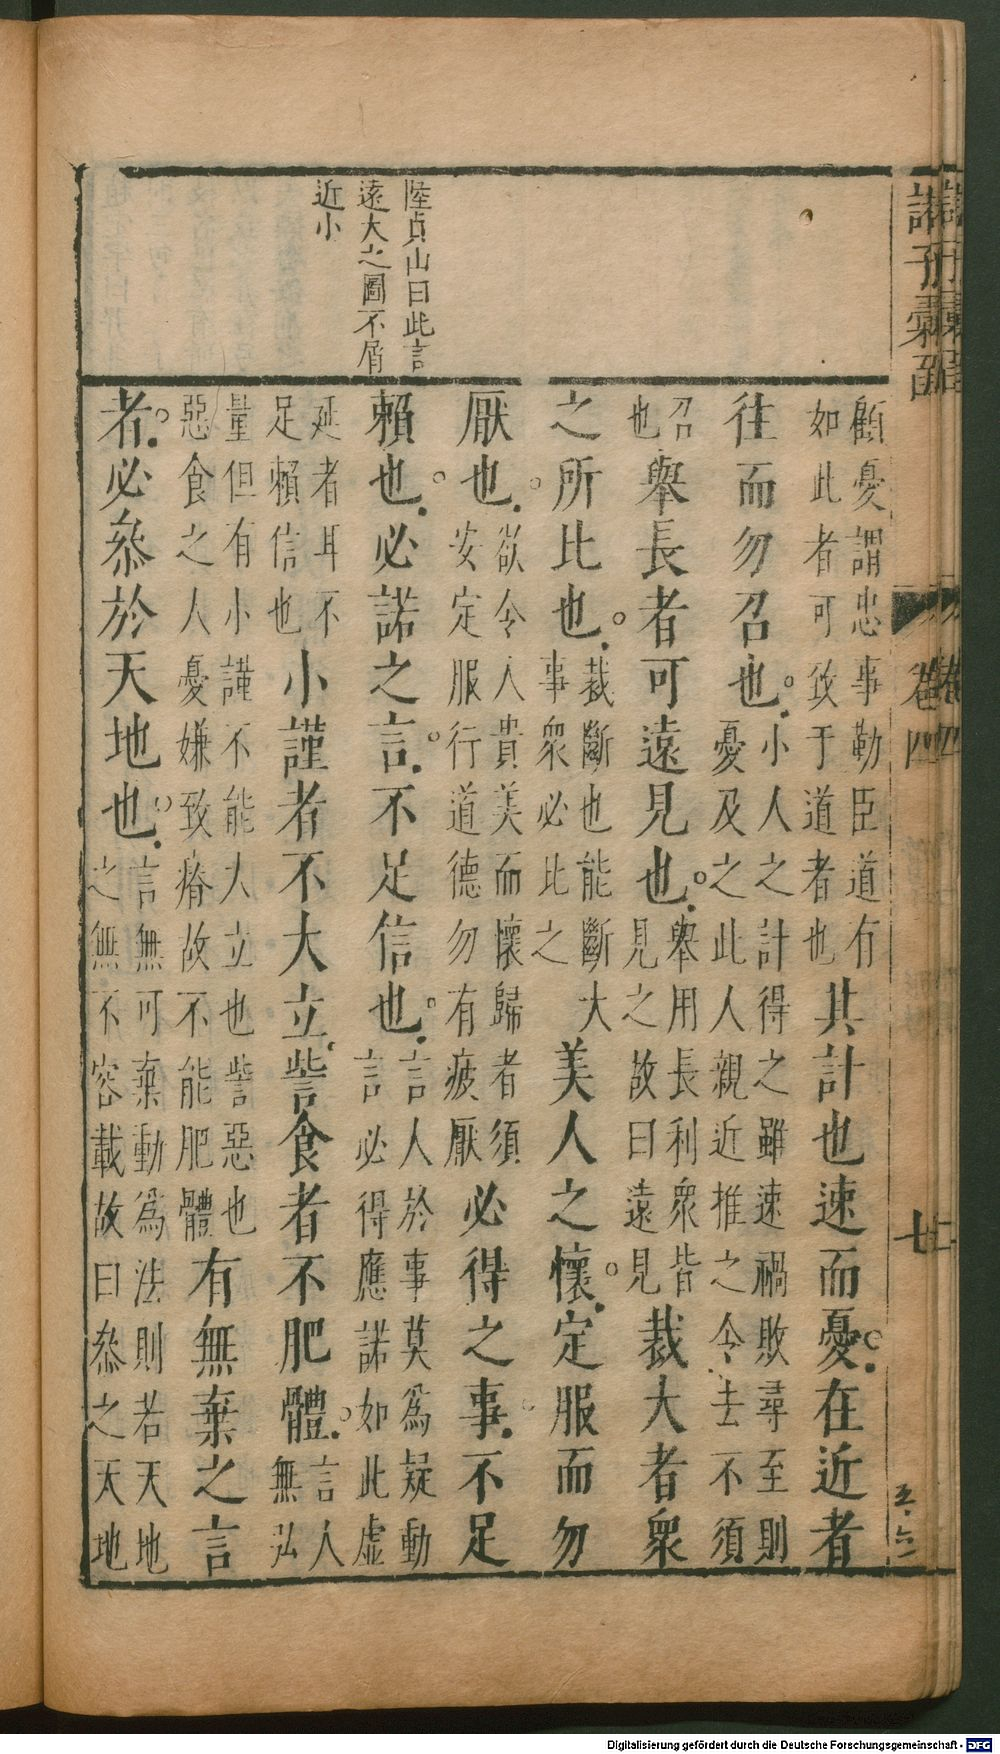 諸子彙函
卷四
陸貞山曰此言
遠大之圖不屑
近小
顧憂謂忠事勒臣道有如此者可致于道者也其計也速而憂。在近者
往而勿召也。小人之計得之雖速禍敗尋至則憂及之此人親近推之令去不須
召也舉長者可遠見也。舉用長利衆皆見之故曰遠見裁大者衆
之所比也。裁斷也能斷大事衆必比之美人之懷。定服而勿
厭也。欲令人貴美而懷歸者須安定服行道德勿有疲厭必得之事。不足
賴也。必諾之言。不足信也。言人於事莫爲疑動言必得應諾如此虛
延者耳不足賴信也小謹者不大立、訾食者不肥體。言人無弘
量但有小謹不能大立也訾惡也惡食之人憂嫌致瘠故不能肥體有無棄之言
者。必叅於天地也。言無可棄動爲法則若天地之無不容載故曰叅之天地
Digitalisierung gefördert durch die Deutsche Forschungsgemeinschaft - DFG